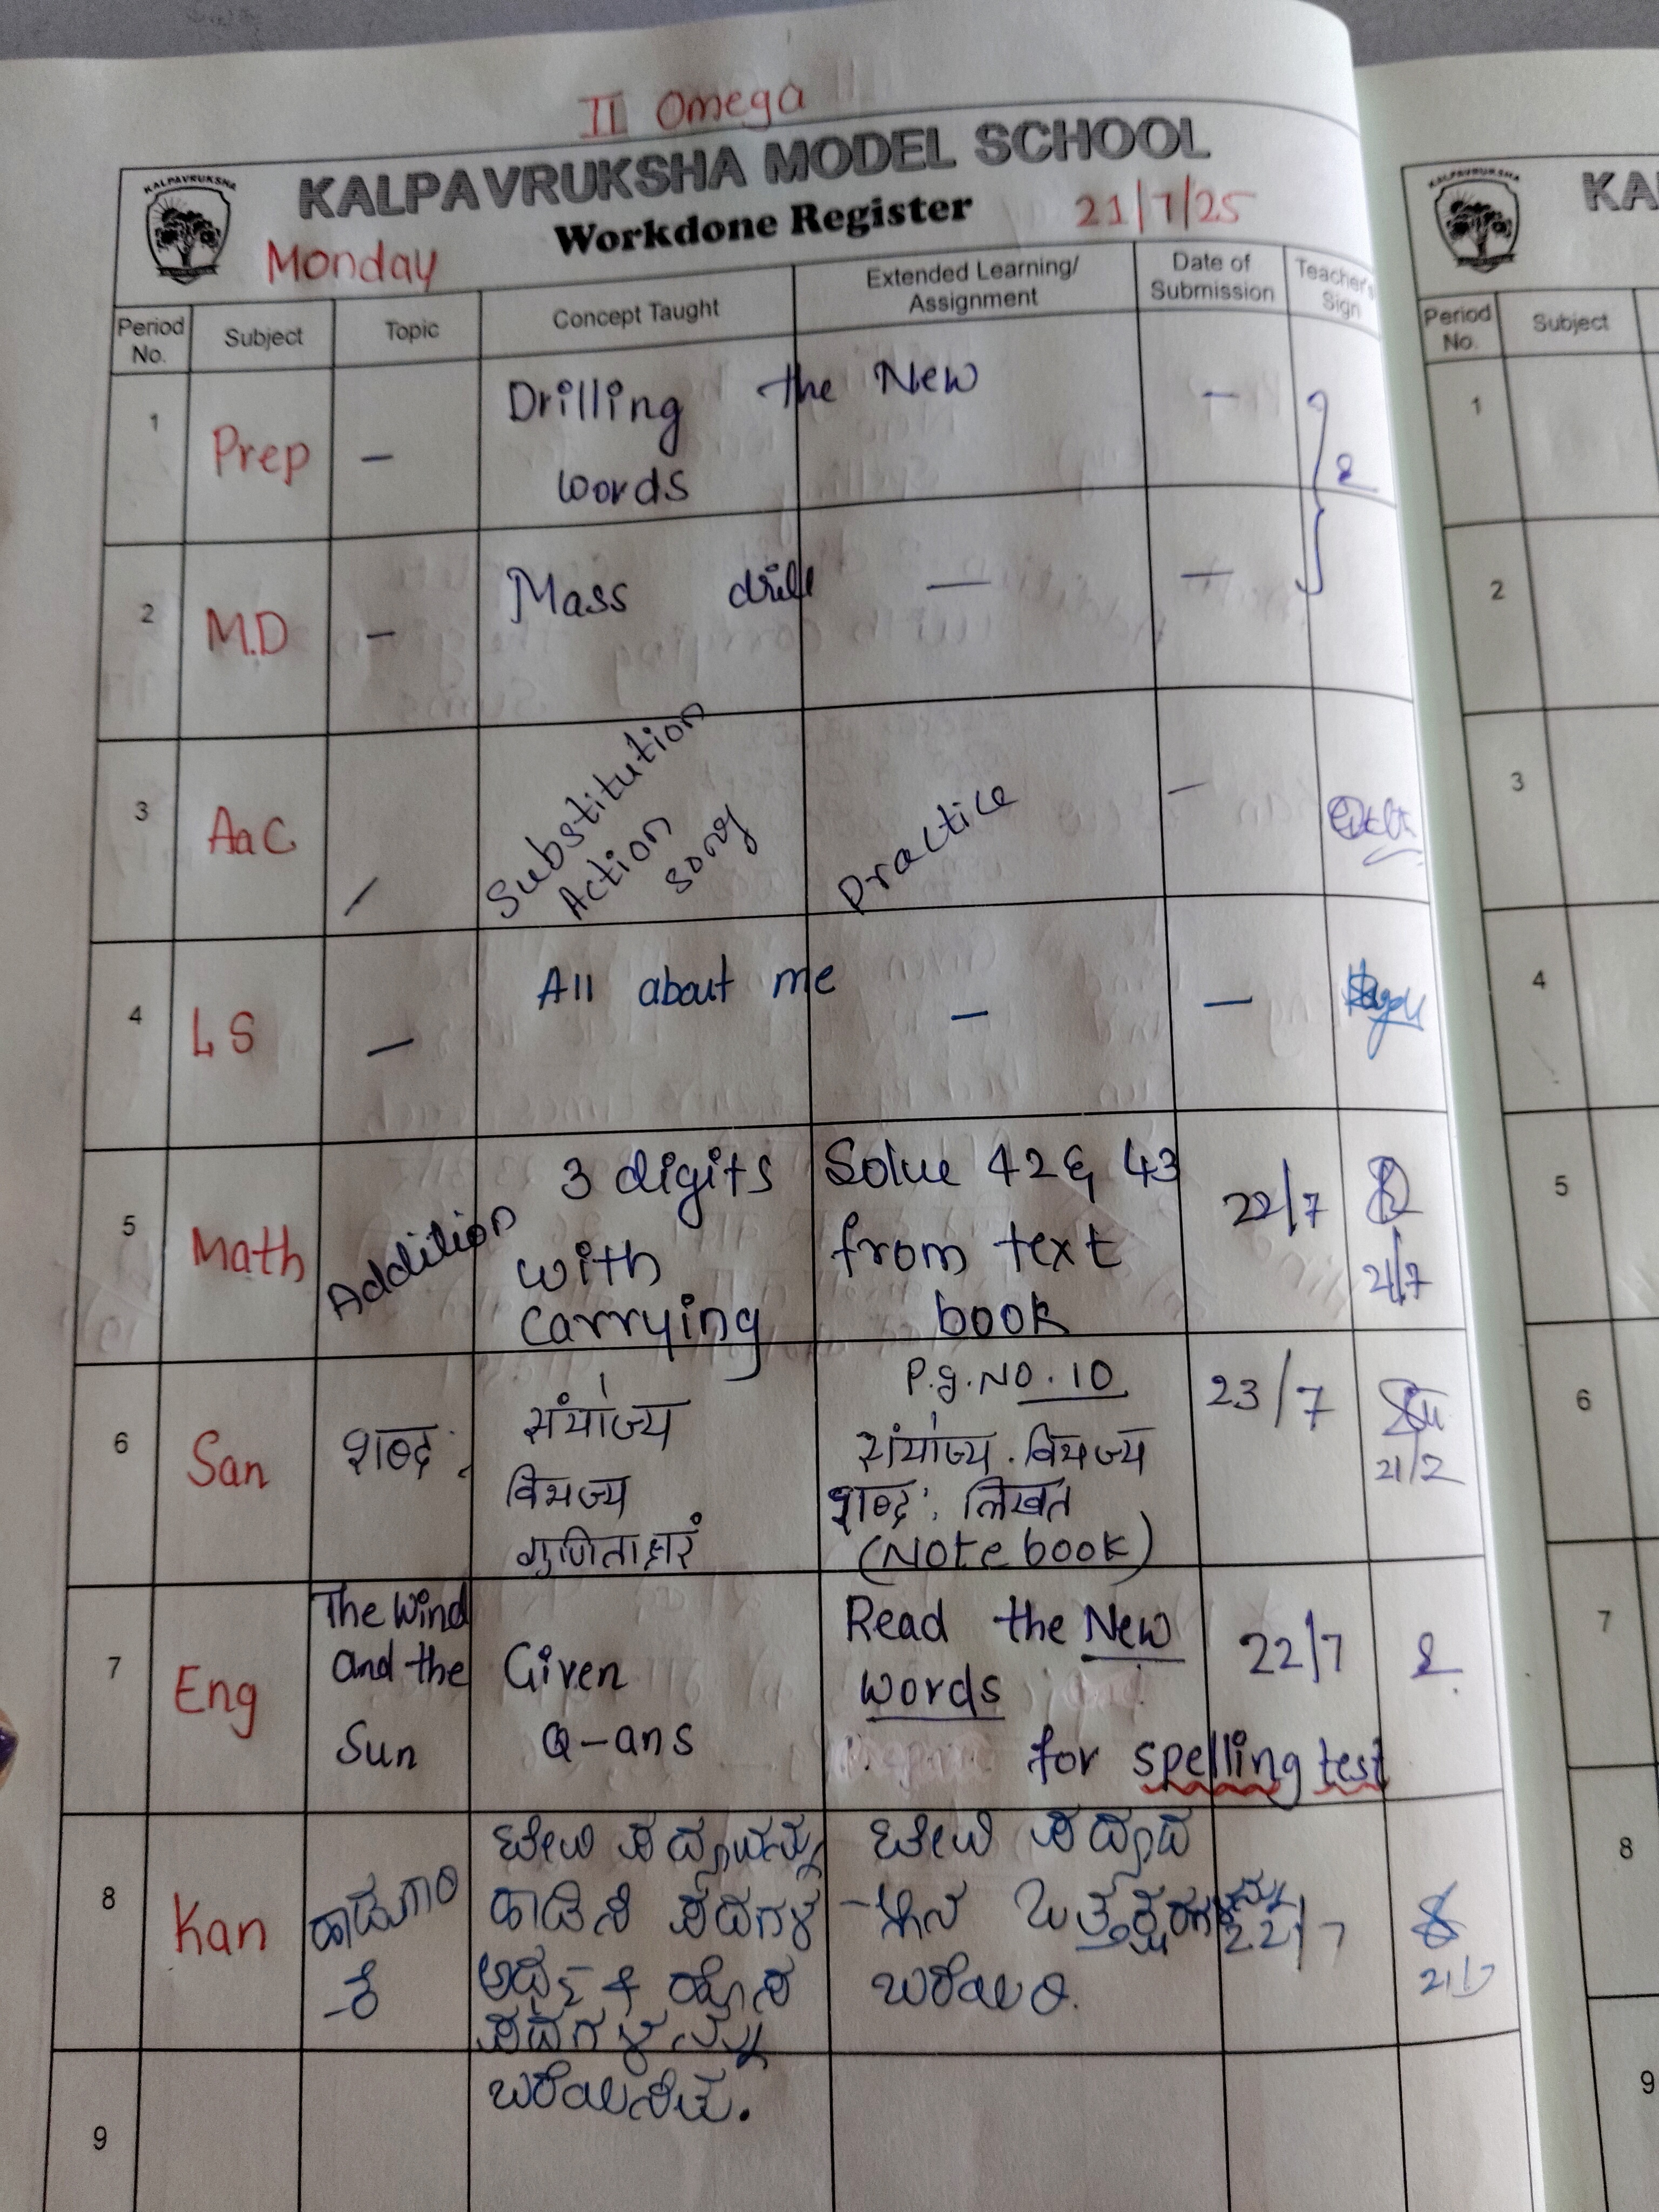 II Omega
KALPAVRUKSHA
KALPAVRUKSHA MODEL SCHOOL
Workdone Register
Monday
21/7/25
Period No.
Subject
Topic
Concept Taught
Extended Learning/
Assignment
Date of
Submission
Teacher's
Sign
1
Prep
–
Drilling the New
words
–
2
M.D
–
Mass drill
—
—
3
AaC
–
Substitution
Action
song
Practice
–
4
LS
–
All about me
–
–
5
Math
Addition
3 digits
with
carrying
Solve 42 & 43
from text
book
22/7
21/7
6
San
शब्द:
संयोज्य
विभज्य
गुणिताक्षरं
P.g.No.10
संयोज्य . विभज्य
शब्द: लिखत
(Note book)
23/7
7
Eng
The Wind
and the
Sun
Given
Q-ans
Read the New
words
for spelling test
22/7
8
Kan
ಪದಗಳ
ಪದಗಳನ್ನು
22/7
21/7
9
KALPAVRUKSHA
KA
Period
No.
Subject
1
2
3
4
5
6
7
8
9